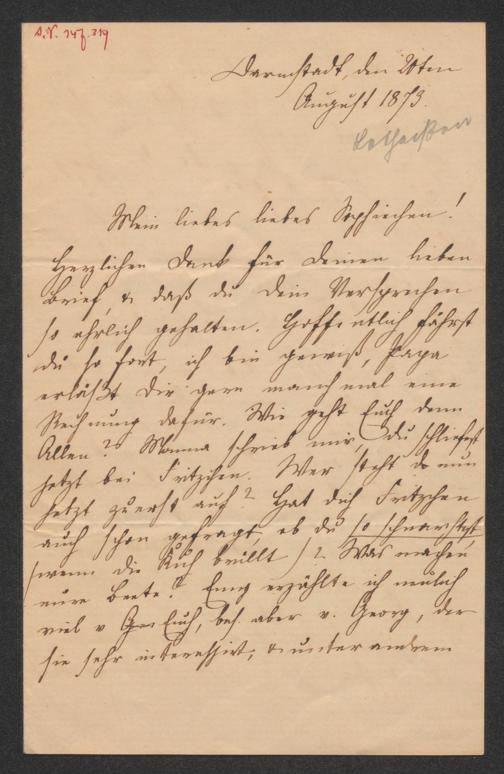 Darmstadt, den 20ten
August 1873.
Mein liebes liebes Sophiechen!
Herzlichen Dank für Deinen lieben
Brief, & daß du Dein Versprechen
so ehrlich gehalten. Hoffentlich fährst
du so fort, ich bin gewiß, Papa
erläßt Dir gern manchmal eine
Rechnung dafür. Wie geht Euch denn
Allen? Mamma schrieb mir, du schliefest
jetzt bei Fritzchen. Wer steht da nun
jetzt zuerst auf? Hat dich Fritzchen
auch schon gefragt, ob du so schnarchst,
(wenn die Kuh brüllt)? Was machen
eure Beete? Emy erzählte ich neulich
viel v Euch, bes. aber v. Georg, der
sie sehr interessirt, & unter andrem